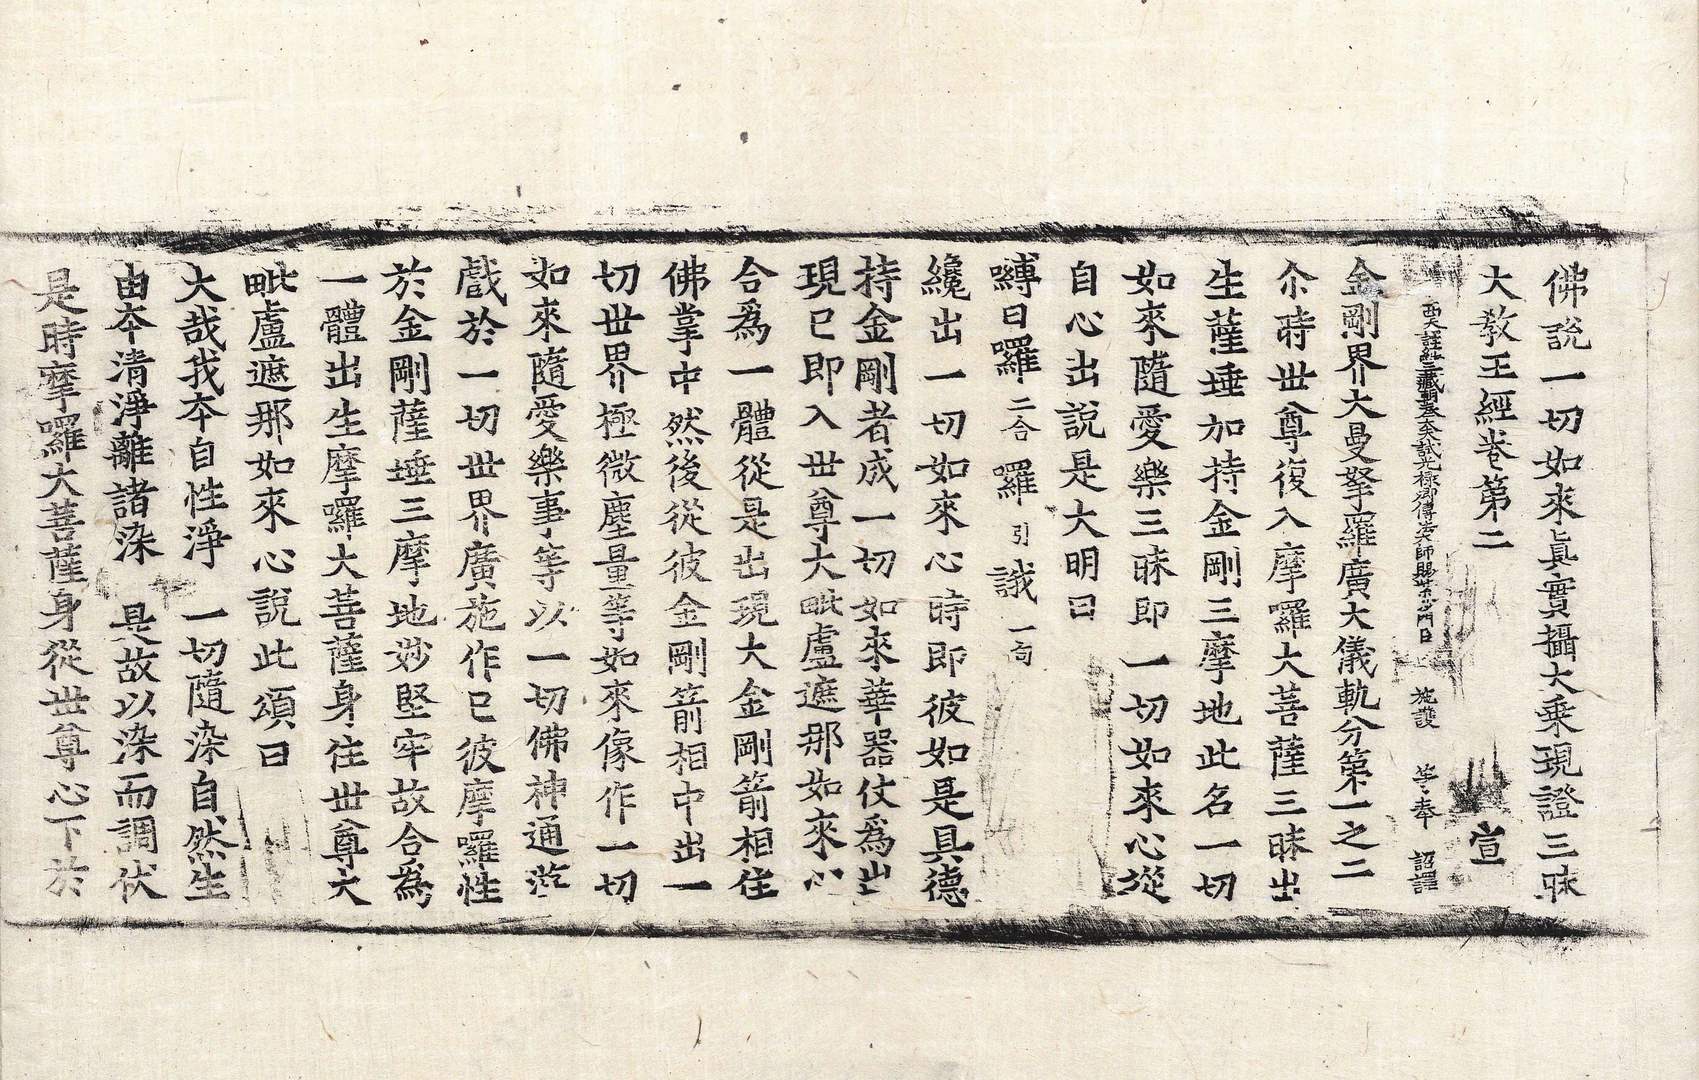 佛說一切如來眞實攝大乘現證三昧
大敎王經卷第二 宣
西天譯經三藏朝奉大夫試光祿卿傳法大師賜紫沙門臣 施護 等奉 詔譯
金剛界大曼拏羅廣大儀軌分第一之二
尒時世尊復入摩囉大菩薩三昧出
生薩埵加持金剛三摩地此名一切
如來隨愛樂三昧即一切如來心從
自心出說是大明曰
嚩日囉 二合 囉 引 誐 一句
纔出一切如來心時即彼如是具德
持金剛者成一切如來華器仗爲出
現已即入世尊大毗盧遮那如來心
合爲一體從是出現大金剛箭相住
佛掌中然後從彼金剛箭相中出一
切世界極微塵量等如來像作一切
如來隨愛樂事等以一切佛神通遊
戲於一切世界廣施作已彼摩囉性
於金剛薩埵三摩地妙堅牢故合爲
一體出生摩囉大菩薩身住世尊大
毗盧遮那如來心說此頌曰
大哉我本自性淨 一切隨染自然生
由本清淨離諸染 是故以染而調伏
是時摩囉大菩薩身從世尊心下於